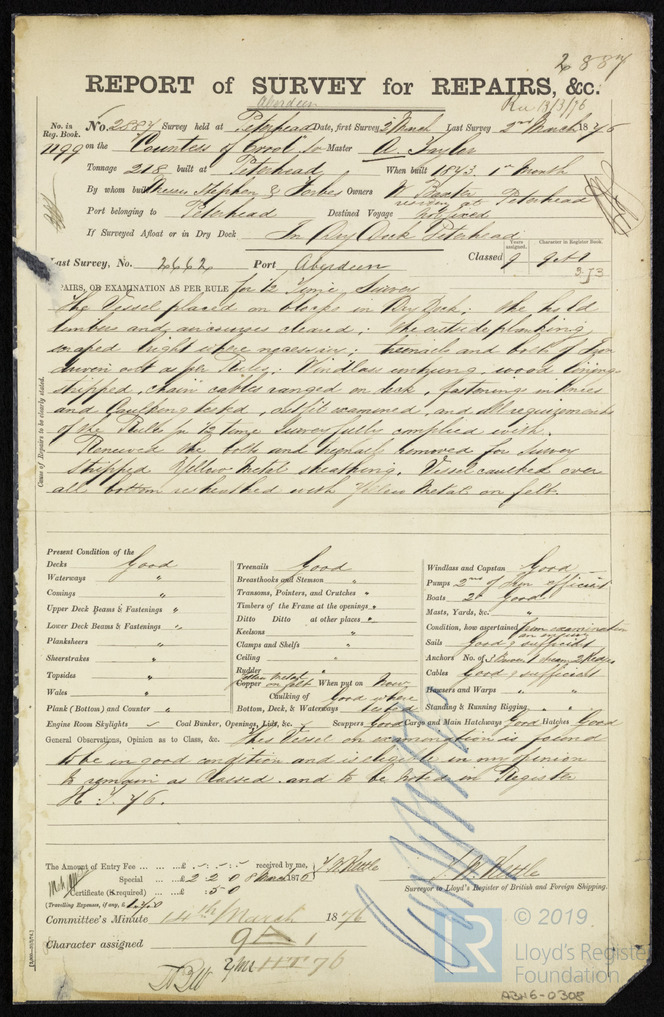 2887
REPORT of SURVEY for REPAIRS, &c.
Aberdeen
Rec 13/3/76
No. in Reg. Book. 1199
No. 2887 Survey held at Peterhead Date, first Survey 2 March Last Survey 2nd March 1876
on the "Countess of Errol" Master A. Taylor
Tonnage 218 built at Peterhead When built 1843. 1st month
By whom built Messrs Stephen & Forbes Owners W. Baxter
residing at Peterhead
Port belonging to Peterhead Destined Voyage Not fixed
If Surveyed Afloat or in Dry Dock In Dry Dock Peterhead
Years assigned. Character in Register Book.
Last Survey, No. 2662 Port Aberdeen Classed 9
PAIRS, OR EXAMINATION AS PER RULE for 1/2 Time Survey
The Vessel placed on blocks in Dry Dock. The hold
timbers and aircourses cleared; the outside planking
scraped bright where necessary; treenails and bolts of Iron
driven out as per Rules; Windlass unhung, wood linings
stripped, chain cables ranged on deck, fastenings in knees
and Caulking tested, outfit examined, and all requirements
of the Rules for 1/2 time survey fully complied with.
Renewed the bolts and treenails removed for survey
Stripped Yellow Metal sheathing. Vessel caulked over
all bottom resheathed with Yellow Metal on felt.
Cause of Repairs to be clearly stated.
Present Condition of the
Decks Good
Waterways "
Comings "
Upper Deck Beams & Fastenings "
Lower Deck Beams & Fastenings "
Planksheers "
Sheerstrakes "
Topsides "
Wales "
Plank (Bottom) and Counter "
Treenails Good
Breasthooks and Stemson "
Transoms, Pointers, and Crutches "
Timbers of the Frame at the openings "
Ditto Ditto at other places "
Keelsons "
Clamps and Shelfs "
Ceiling "
Rudder "
Yellow Metal
Copper on felt When put on Now
Caulking of Good where
Bottom, Deck, & Waterways tested
Windlass and Capstan Good
Pumps 2 of Iron efficient
Boats 2 Good
Masts, Yards, &c. "
Condition, how ascertained from examination
Sails Good & sufficient
Anchors No. of 3 Bower 1 Stream 2 Kedges
Cables Good & sufficient
Hawsers and Warps "
Standing & Running Rigging "
Engine Room Skylights Coal Bunker, Openings, Lids, &c. Scuppers Good Cargo and Main Hatchways Good Hatches Good
General Observations, Opinion as to Class, &c. This Vessel on examination is found
to be in good condition and is eligible in my opinion
to remain as Classed and to be noted in Register
H. T. 76.
The Amount of Entry Fee ... ... ... £ received by me,
Special ... £ 2 2 0 8 March 1876
Certificate (if required) ... £ : 5 0
(Travelling Expenses, if any, £
J. W. Kettle
Surveyor to Lloyd's Register of British and Foreign Shipping.
Committee's Minute 14th March 1876
Character assigned 9 1
HT 76
© 2019
LR
Lloyd's Register
Foundation
A3H6-0308